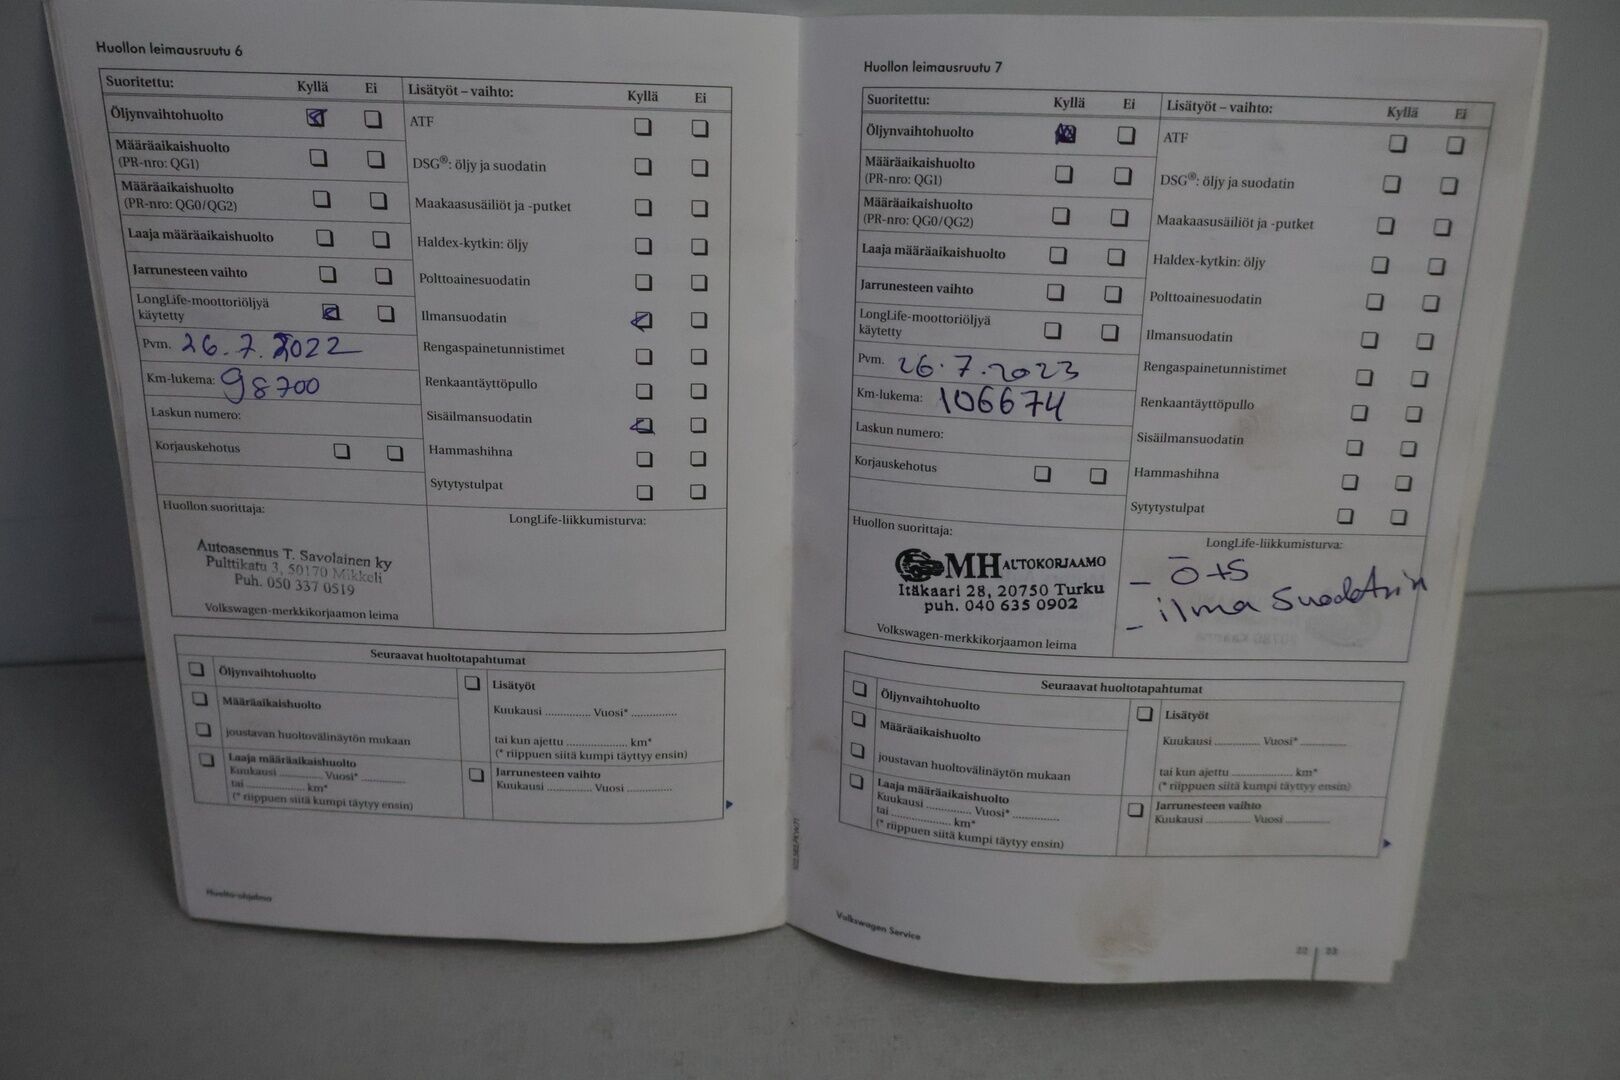 Huollon leimausruutu 6
Suoritettu: Kyllä Ei
Öljynvaihtohuolto
Määräaikaishuolto
(PR-nro: QG1)
Määräaikaishuolto
(PR-nro: QG0/QG2)
Laaja määräaikaishuolto
Jarrunesteen vaihto
LongLife-moottoriöljyä
käytetty
Pvm. 26.7.2022
Km-lukema: 98700
Laskun numero:
Korjauskehotus
Lisätyöt – vaihto: Kyllä Ei
ATF
DSG®: öljy ja suodatin
Maakaasusäiliöt ja -putket
Haldex-kytkin: öljy
Polttoainesuodatin
Ilmansuodatin
Rengaspainetunnistimet
Renkaantäyttöpullo
Sisäilmansuodatin
Hammashihna
Sytytystulpat
Huollon suorittaja:
Autoasennus T. Savolainen ky
Pulttikatu 3, 50170 Mikkeli
Puh. 050 337 0519
Volkswagen-merkkikorjaamon leima
LongLife-liikkumisturva:
Seuraavat huoltotapahtumat
Öljynvaihtohuolto
Määräaikaishuolto
joustavan huoltovälinäytön mukaan
Laaja määräaikaishuolto
Kuukausi .............. Vuosi* ..............
tai .................... km*
(* riippuen siitä kumpi täyttyy ensin)
Lisätyöt
Kuukausi .............. Vuosi* ..............
tai kun ajettu .................... km*
(* riippuen siitä kumpi täyttyy ensin)
Jarrunesteen vaihto
Kuukausi .............. Vuosi ..............
Huolto-ohjelma
Huollon leimausruutu 7
Suoritettu: Kyllä Ei
Öljynvaihtohuolto
Määräaikaishuolto
(PR-nro: QG1)
Määräaikaishuolto
(PR-nro: QG0/QG2)
Laaja määräaikaishuolto
Jarrunesteen vaihto
LongLife-moottoriöljyä
käytetty
Pvm. 26.7.2023
Km-lukema: 106674
Laskun numero:
Korjauskehotus
Lisätyöt – vaihto: Kyllä Ei
ATF
DSG®: öljy ja suodatin
Maakaasusäiliöt ja -putket
Haldex-kytkin: öljy
Polttoainesuodatin
Ilmansuodatin
Rengaspainetunnistimet
Renkaantäyttöpullo
Sisäilmansuodatin
Hammashihna
Sytytystulpat
Huollon suorittaja:
MH AUTOKORJAAMO
Itäkaari 28, 20750 Turku
puh. 040 635 0902
Volkswagen-merkkikorjaamon leima
LongLife-liikkumisturva:
- Ö+S
- ilma suodatin
Seuraavat huoltotapahtumat
Öljynvaihtohuolto
Määräaikaishuolto
joustavan huoltovälinäytön mukaan
Laaja määräaikaishuolto
Kuukausi .............. Vuosi* ..............
tai .................... km*
(* riippuen siitä kumpi täyttyy ensin)
Lisätyöt
Kuukausi .............. Vuosi* ..............
tai kun ajettu .................... km*
(* riippuen siitä kumpi täyttyy ensin)
Jarrunesteen vaihto
Kuukausi .............. Vuosi ..............
Volkswagen Service
22 23